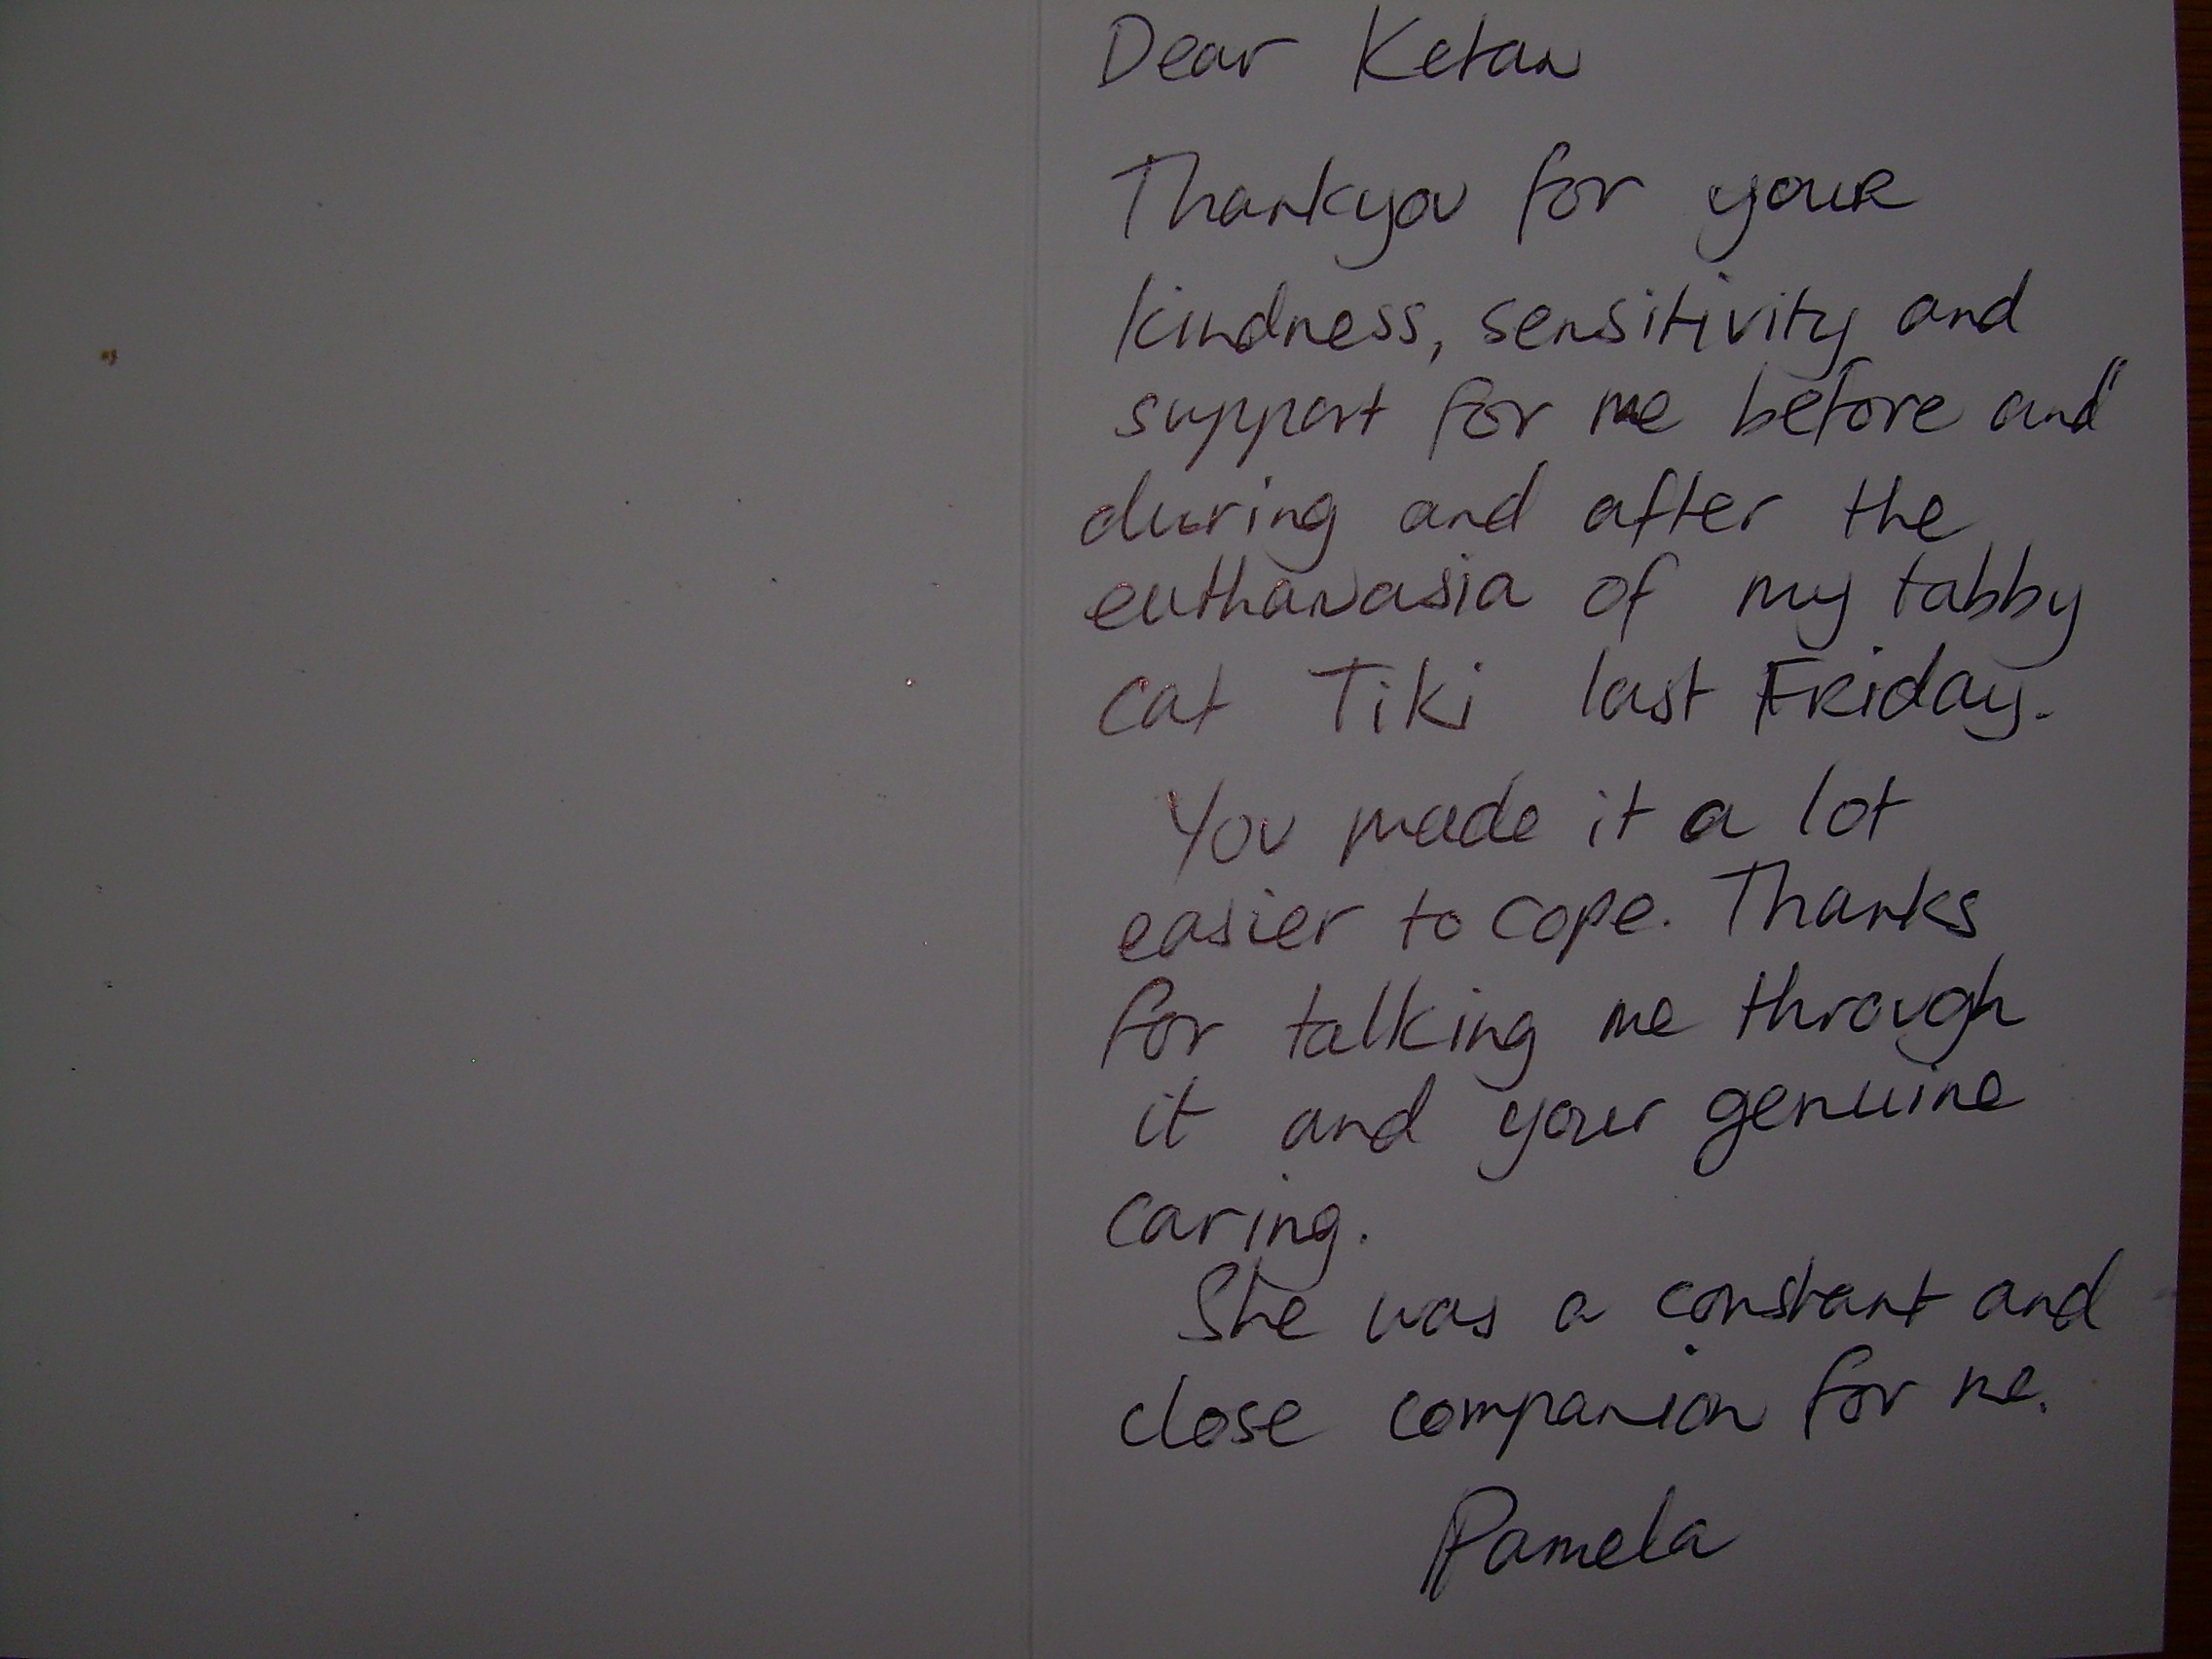 Dear Ketan
Thankyou for your
kindness, sensitivity and
support for me before and"
during and after the
euthanasia of my tabby
cat Tiki last Friday.
You made it a lot
easier to cope. Thanks
for talking me through
it and your genuine
caring.
She was a constant and
close companion for me.
Pamela